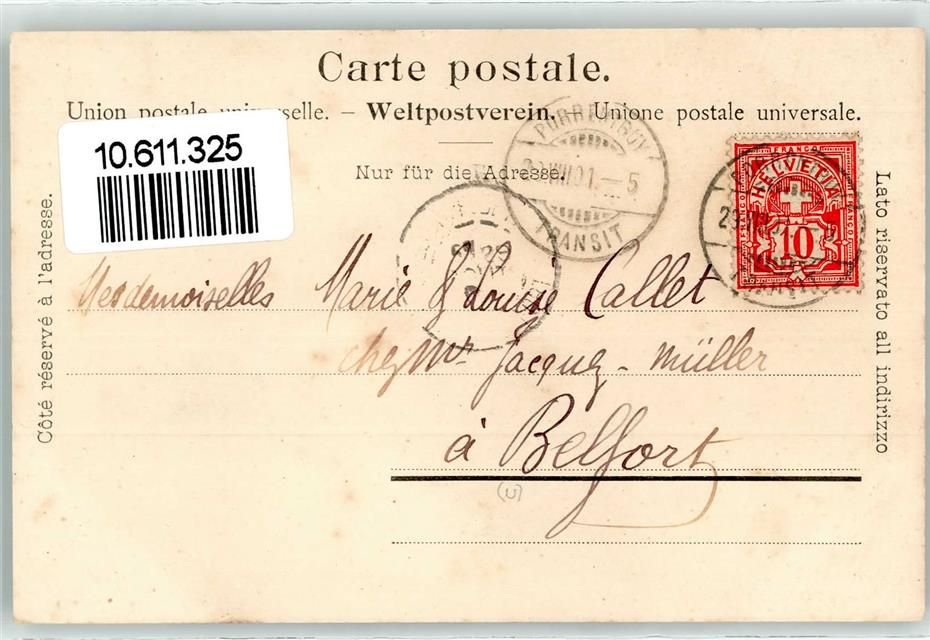 Carte postale.
Union postale universelle. – Weltpostverein. – Unione postale universale.
10.611.325
Nur für die Adresse.
PORRENTRUY
VIII 01. – 5
TRANSIT
FRANCO
HELVETIA
10
Mesdemoiselles Marie & Louise Callet
chez Mr Jacquez - Müller
à Belfort
(5)
Côté réservé à l'adresse.
Lato riservato all indirizzo